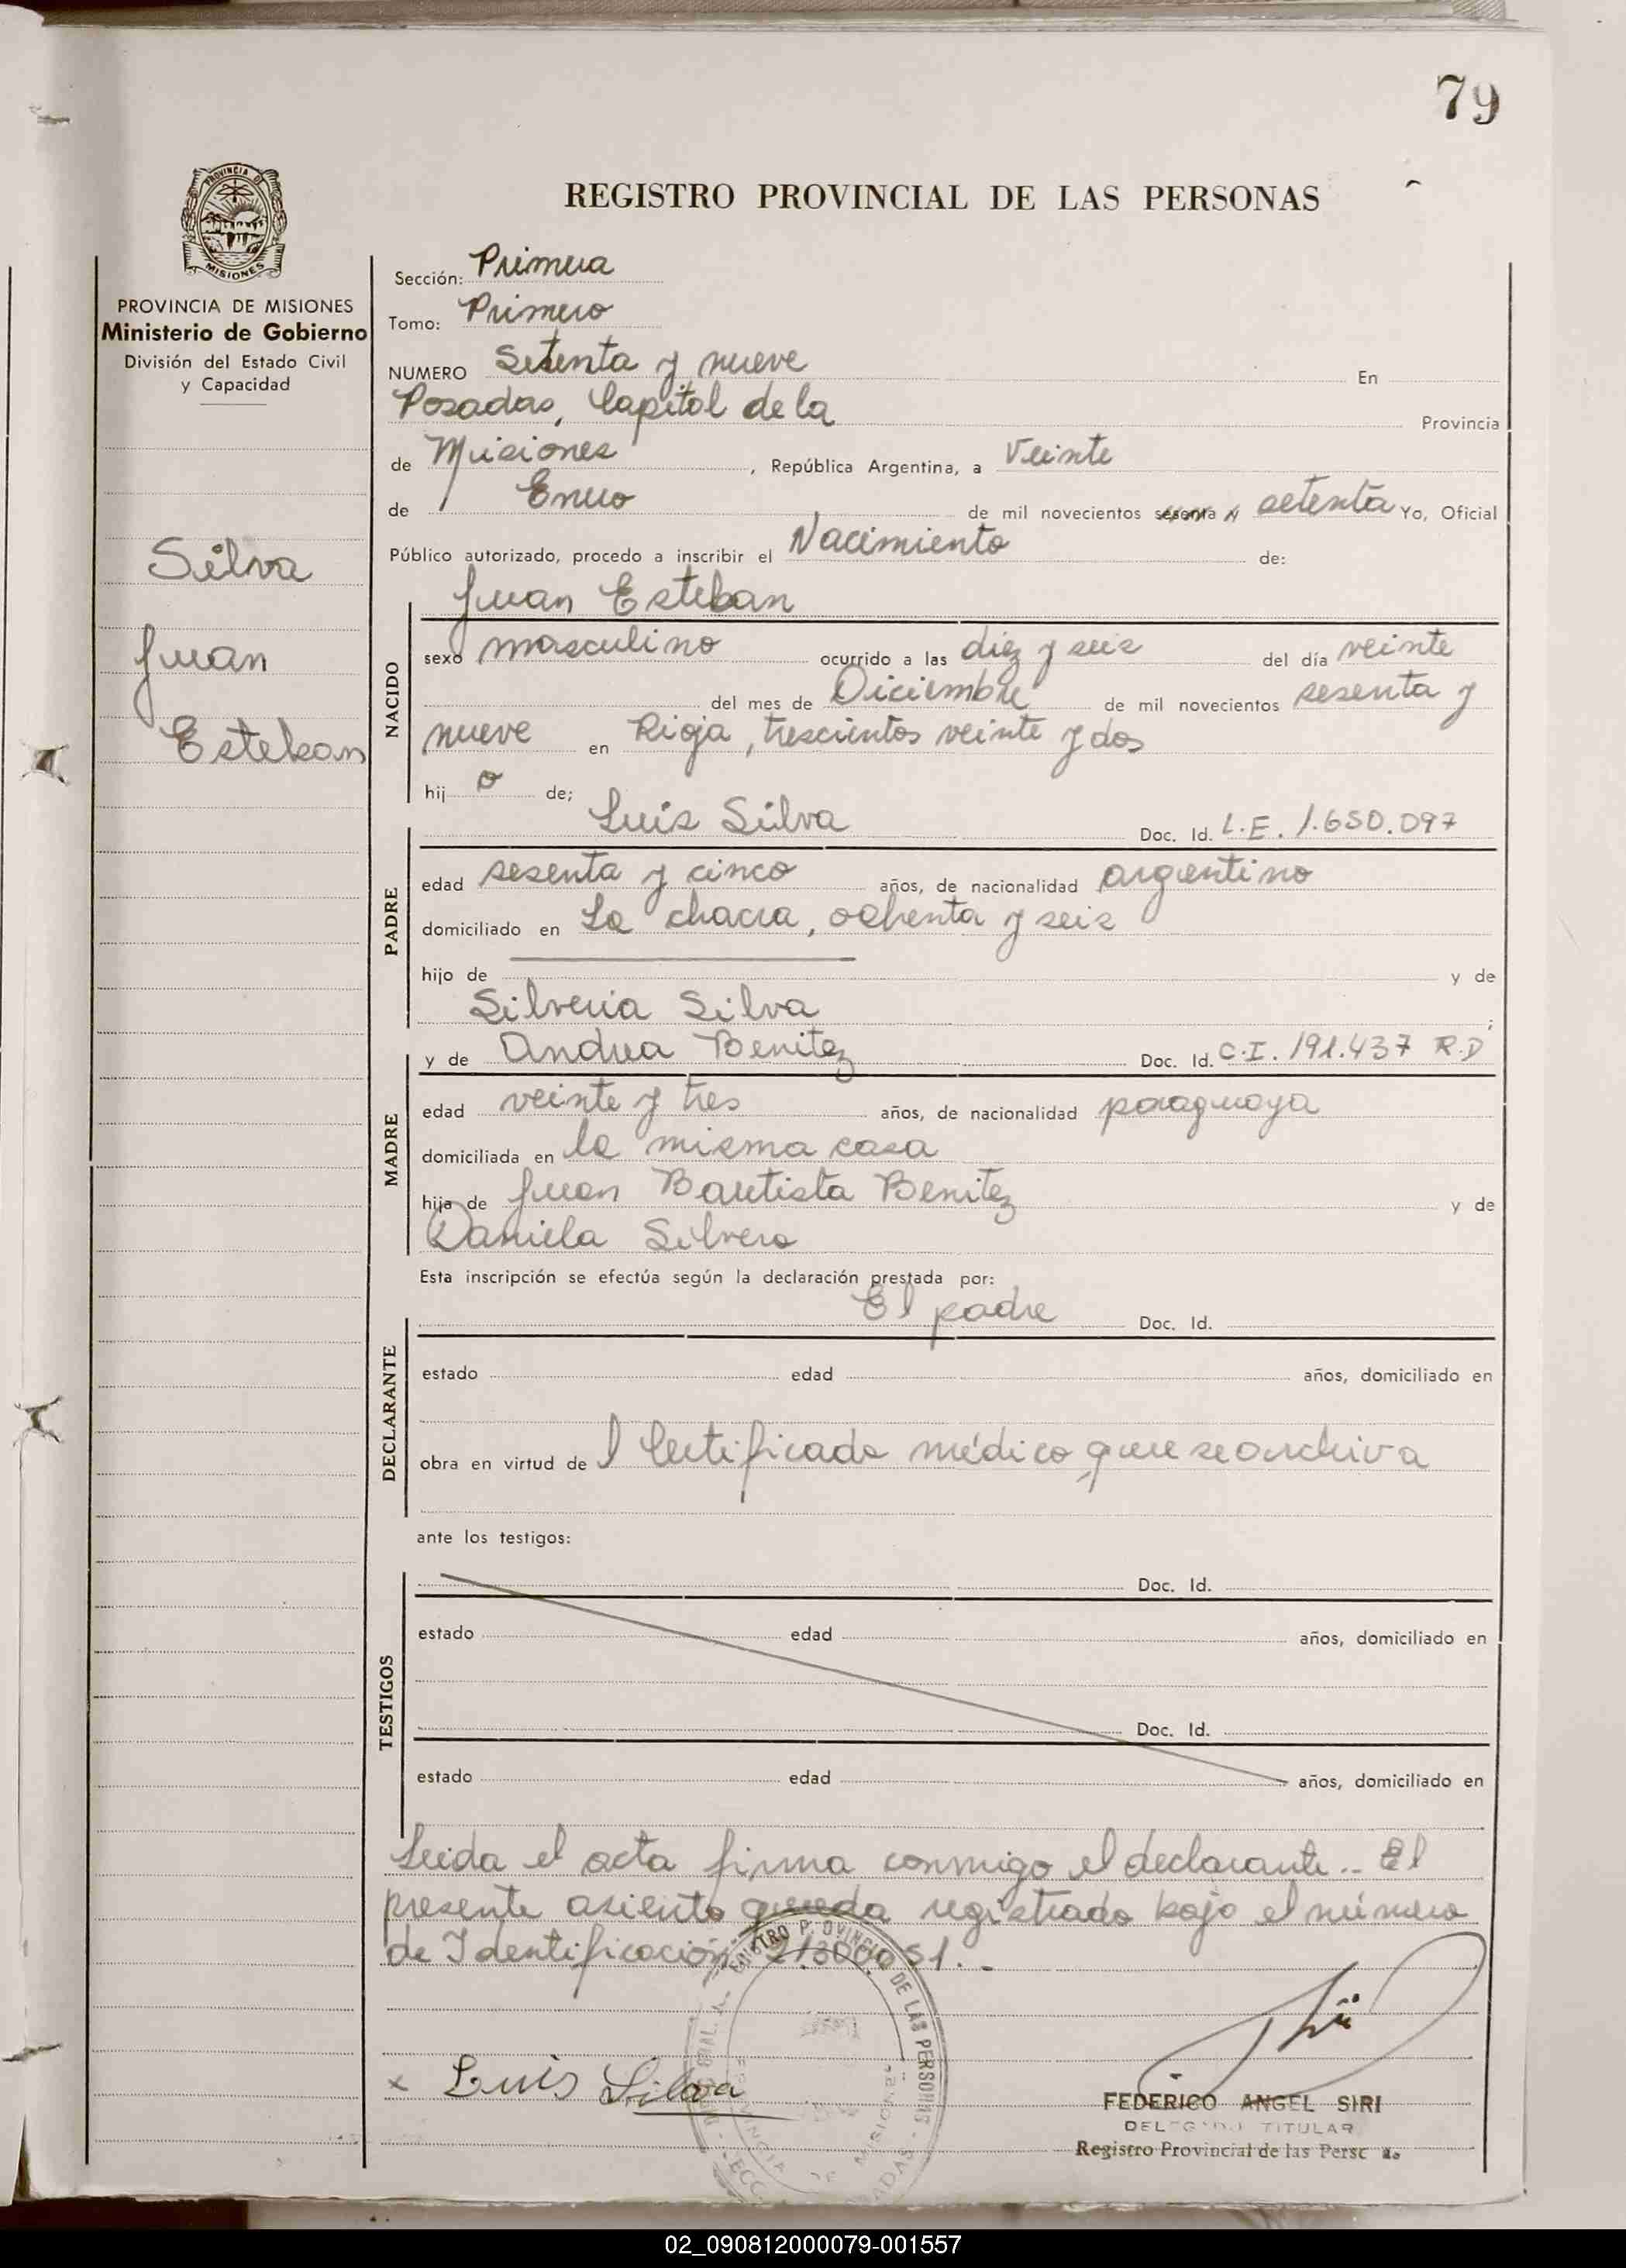 79
PROVINCIA DE
MISIONES
REGISTRO PROVINCIAL DE LAS PERSONAS
PROVINCIA DE MISIONES
Ministerio de Gobierno
División del Estado Civil
y Capacidad
Silva
Juan
Esteban
Sección: Primera
Tomo: Primero
NUMERO Setenta y nueve En
Posadas, Capital de la Provincia
de Misiones, República Argentina, a Veinte
de Enero de mil novecientos sesenta y setenta Yo, Oficial
Público autorizado, procedo a inscribir el Nacimiento de:
Juan Esteban
NACIDO
sexo masculino ocurrido a las diez y seis del día veinte
del mes de Diciembre de mil novecientos sesenta y
nueve en Rioja, trescientos veinte y dos
hijo de;
Luis Silva Doc. Id. L.E. 1.650.097
PADRE
edad sesenta y cinco años, de nacionalidad argentino
domiciliado en La chacra, ochenta y seis
hijo de y de
Silveria Silva ;
y de Andrea Benitez Doc. Id. C.I. 191.437 R.P
MADRE
edad veinte y tres años, de nacionalidad paraguaya
domiciliada en la misma casa
hija de Juan Bautista Benitez y de
Daniela Silvero
Esta inscripción se efectúa según la declaración prestada por:
El padre Doc. Id.
DECLARANTE
estado edad años, domiciliado en
obra en virtud de l Certificado médico, que se archiva
ante los testigos:
TESTIGOS
Doc. Id.
estado edad años, domiciliado en
Doc. Id.
estado edad años, domiciliado en
Leida el acta firma conmigo el declarante.. El
presente asiento queda registrado bajo el número
de Identificación 21300051.-
x Luis Silva
FEDERICO ANGEL SIRI
DELEGADO TITULAR
Registro Provincial de las Persc as
02_090812000079-001557